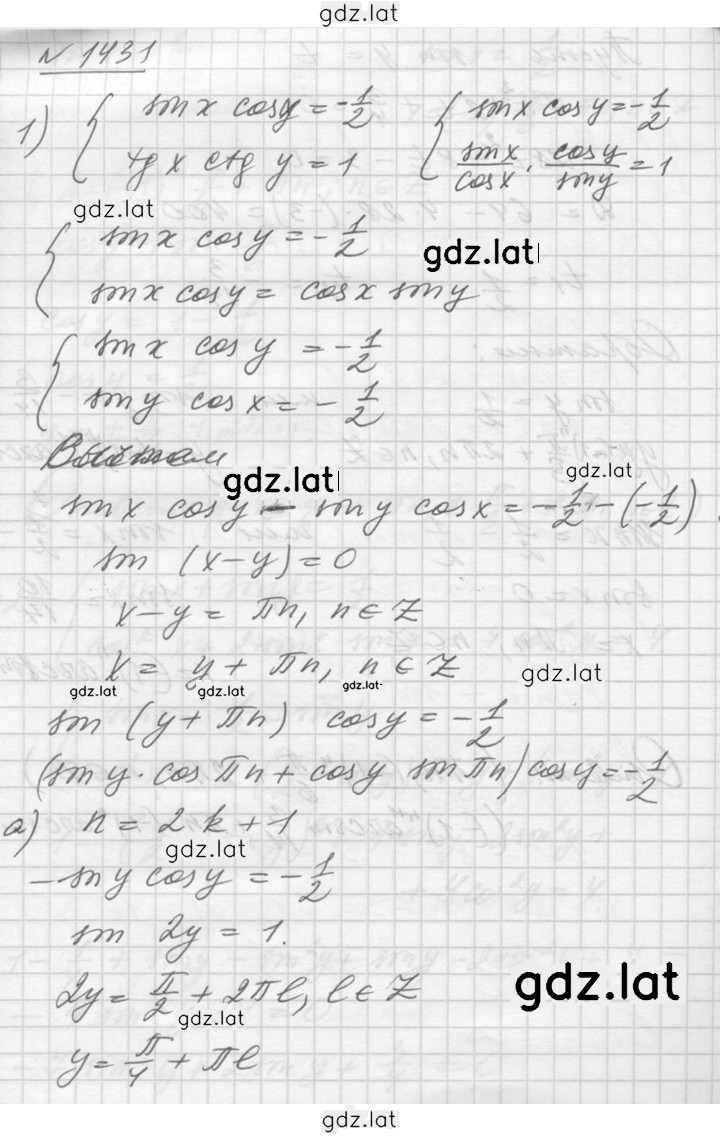 gdz.lat
№ 1431
1) { sin x cos y = -1/2    { sin x cos y = -1/2
tg x ctg y = 1    sin x/cos x · cos y/sin y = 1
gdz.lat
{ sin x cos y = -1/2    gdz.lat
sin x cos y = cos x sin y
{ sin x cos y = -1/2
sin y cos x = -1/2
Вычтем
gdz.lat    gdz.lat
sin x cos y - sin y cos x = -1/2 - (-1/2)
sin (x-y) = 0
x - y = πn, n ∈ Z
x = y + πn, n ∈ Z    gdz.lat
gdz.lat    gdz.lat    gdz.lat
sin (y + πn) cos y = -1/2
(sin y · cos πn + cos y sin πn) cos y = -1/2
а) n = 2k + 1
gdz.lat
- sin y cos y = -1/2
sin 2y = 1.
gdz.lat
2y = π/2 + 2πl, l ∈ Z
gdz.lat
y = π/4 + πl
gdz.lat